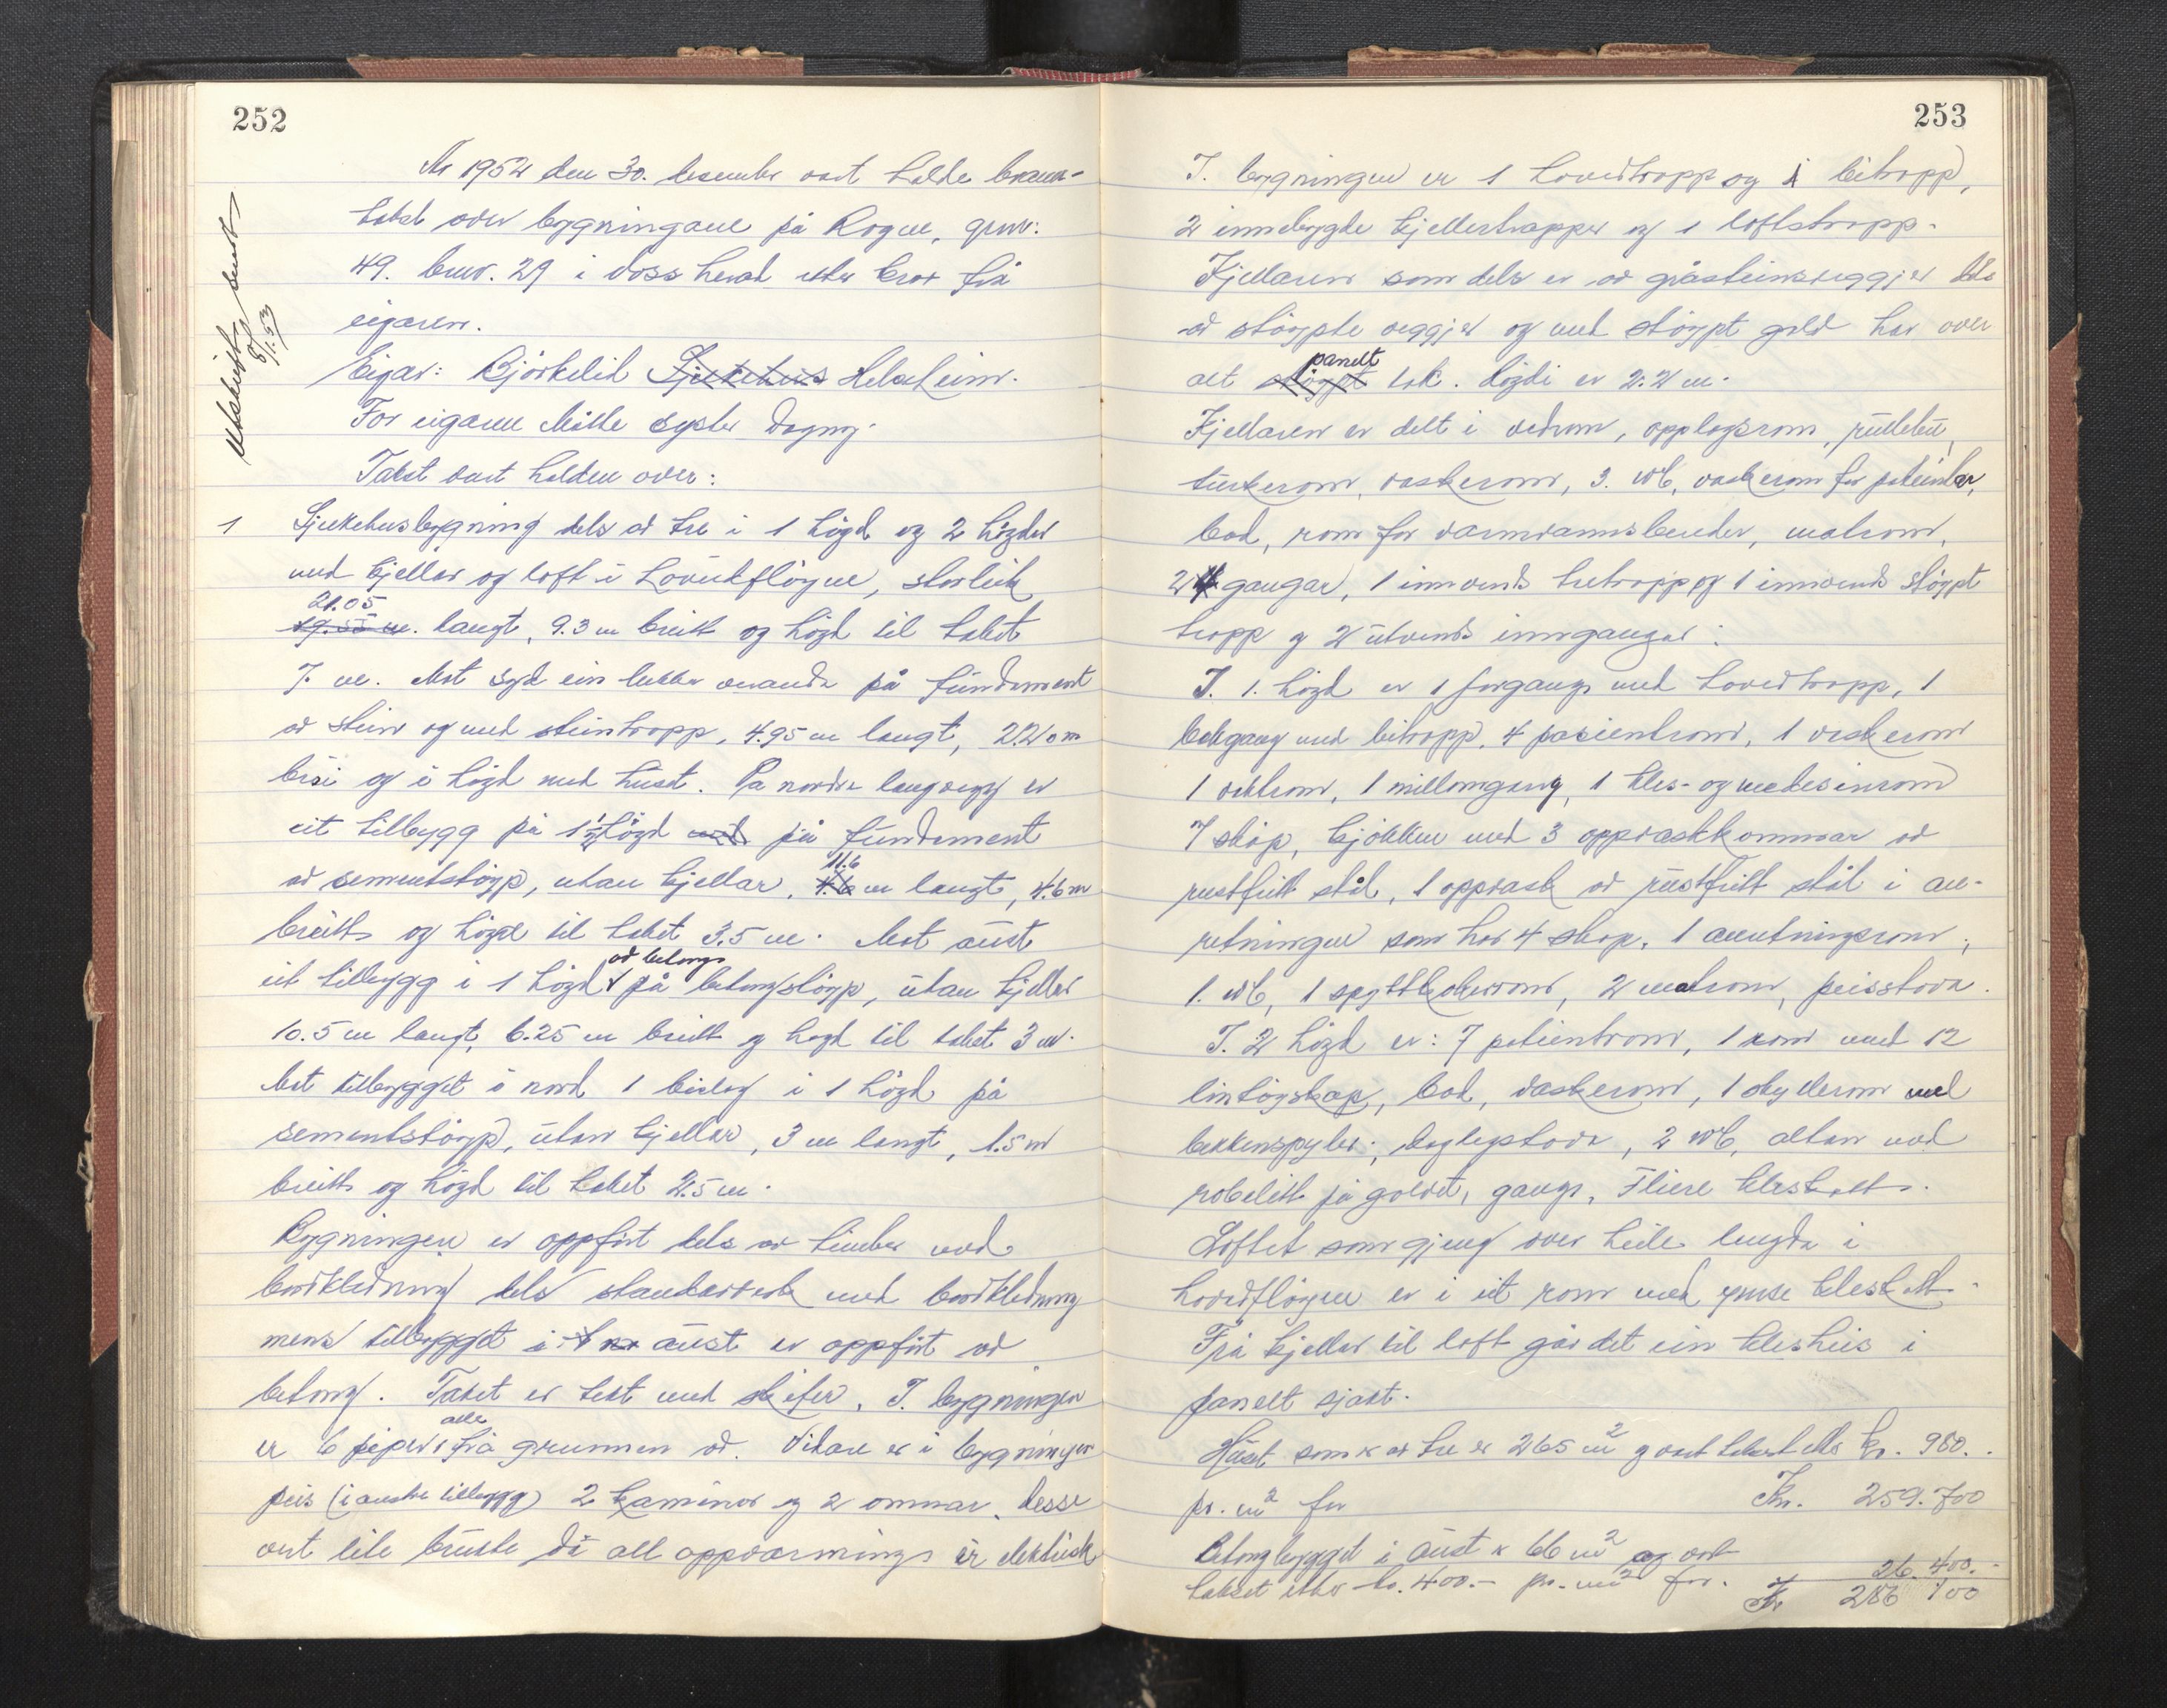 252
År 1952 den 30. desember vart halde brann-
takst over bygningane på Rogne, gnr.
49. bnr. 29 i Voss herad etter krav frå
eigaren.
Eigar: Bjørkelid Sjukehus Helseheim.
For eigaren møtte syster Dagny.
Takst vart halden over:
Utskrift sendt
8/1.53
1 Sjukehusbygning dels av tre i 1 høgd og 2 høgder
med kjellar og loft i hovudfløyen, storleik
21.05
19.55 m. langt, 9.3 m breitt og høgd til taket
7 m. Mot syd ein lukka veranda på fundament
av stein og med steintropp, 4.95 m langt, 2.20 m
brei og i høgd med huset. På nordre langvegg er
eit tilbygg på 1 1/2 høgd med på fundament
11.6
av sementstøyp, utan kjellar, 4.6 m langt, 4.6 m
breitt og høgde til taket 3.5 m. Mot aust
av betong
eit tilbygg i 1 høgd på betongstøyp, utan kjellar
10.5 m langt, 6.25 m breitt og høgd til taket 3 m.
Mot tilbygget i nord 1 bislag i 1 høgd på
sementstøyp, utan kjellar, 3 m langt, 1.5 m
breitt og høgd til taket 2.5 m.
Bygningen er oppført dels av timber med
bordkledning dels standarverk med bordkledning
mens tilbygget i aust er oppført av
betong. Taket er tekt med skifer. I bygningen
alle
er 6 piper frå grunnen av. Vidare er i bygningen
peis (i austre tilbygg) 2 kaminor og 2 omnar. Desse
vert lite brukte då all oppvarming er elektrisk
253
I bygningen er 1 hovedtropp og 1 bitropp,
2 innebygde kjellertrapper og 1 loftstropp.
Kjellaren som dels er av gråsteinsveggjer dels
av støypte veggjer og med støypt gold har over
panelt
alt støypt tak. Høgdi er 2.2 m.
Kjellaren er delt i vedrom, opplagsrom, rullebu,
turkerom, vaskerom, 3. WC, vaskerom for patientar,
bad, rom for varmvannsbereder, matrom,
2 gangar, 1 innvends tretropp og 1 innvends støypt
tropp og 2 utvends inngangar.
I. 1. høgd er 1 forgang med hovedtropp, 1
bakgang med bitropp, 4 pasientrom, 1 vaskerom
1 vaktrom, 1 millomgang, 1 kles- og medesinrom
7 skåp, kjøkken med 3 oppvaskkommar av
rustfritt stål, 1 oppvask av rustfritt stål i an-
retningen som har 4 skap, 1 anretningsrom,
1. WC, 1 spyttkokerrom, 2 matrom, peisstova.
I. 2 høgd er: 7 patientrom, 1 rom med 12
lintøyskap, bad, vaskerom, 1 skyllerom med
bekkenspyler, daglegstova, 2 WC, altan med
robelitt på golvet, gang, fleire kleskott.
Loftet som gjeng over heile lengda i
hovedfløyen er i eit rom med ymse kleskott.
Frå kjellar til loft går det ein klesheis i
panelt sjakt.
Huset som er av tre er 265 m2 og vart taksert etter kr. 980.-
pr. m2 for Kr. 259.700
Betongbygget i aust er 66 m2 og vart
taksert etter kr. 400.- pr. m2 for. 26.400.-
Kr 286 100